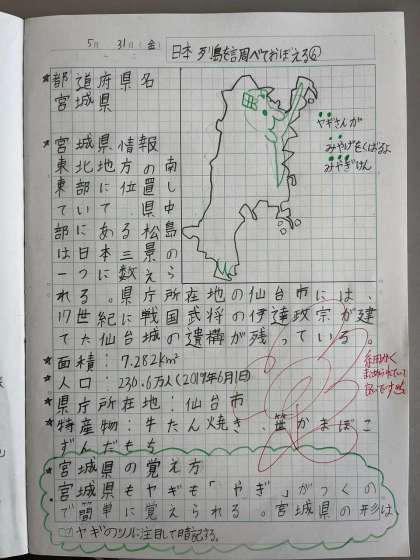 5月 31日(金)
日本列島を調べておぼえる⑥
★都道府県名
宮城県
★宮城県情報
東北地方の南
東部に位置し
ていて 県中
部にある松島
は日本三景の
一つに数えら
れる。県庁所在地の仙台市には、
17世紀に戦国武将の伊達政宗が建
てた仙台城の遺構が残っている。
ヤギさんが
みやげをくばるよ
みやぎけん
★面積:7.282km²
★人口 230.6万人(2019年6月1日)
★県庁所在地:仙台市
★特産物:牛たん焼き、笹かまぼこ
ずんだもち
★宮城県の覚え方
宮城県もヤギも「やぎ」がつくの
で簡単に覚えられる。宮城県の形は
ヤギのツノに注目して暗記する。